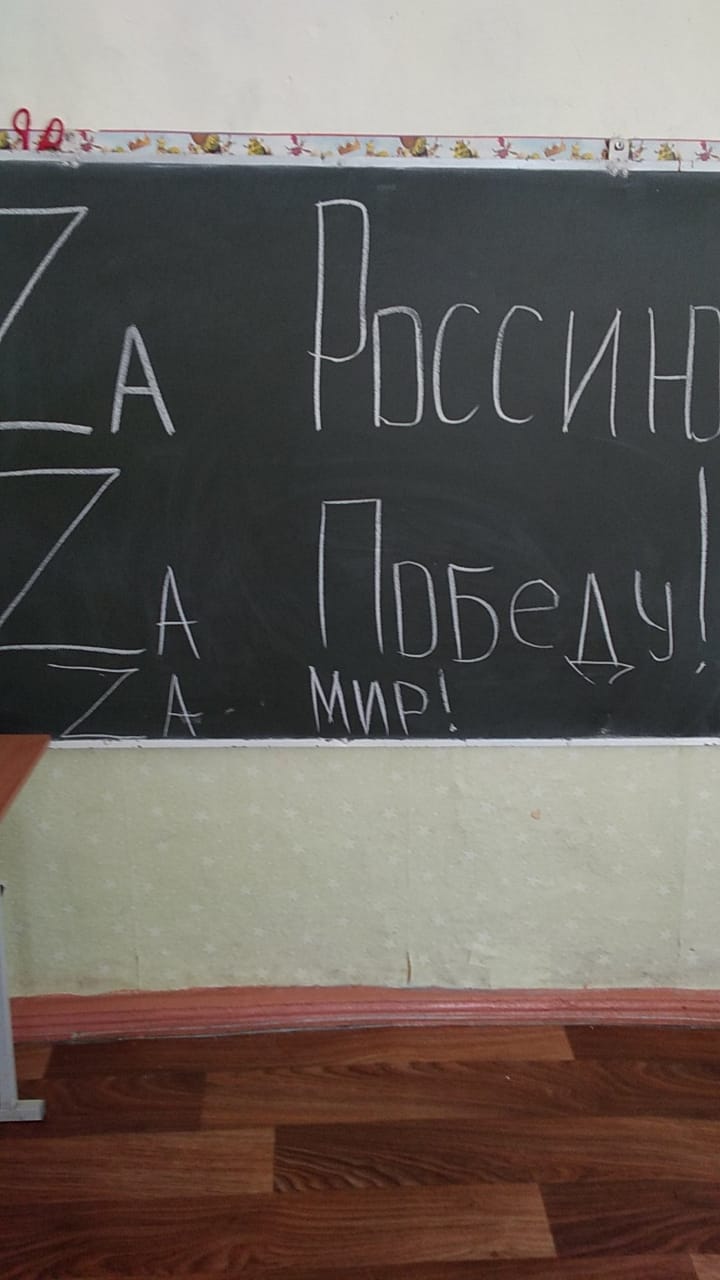 Zа Россию
Zа Победу!
Zа мир!